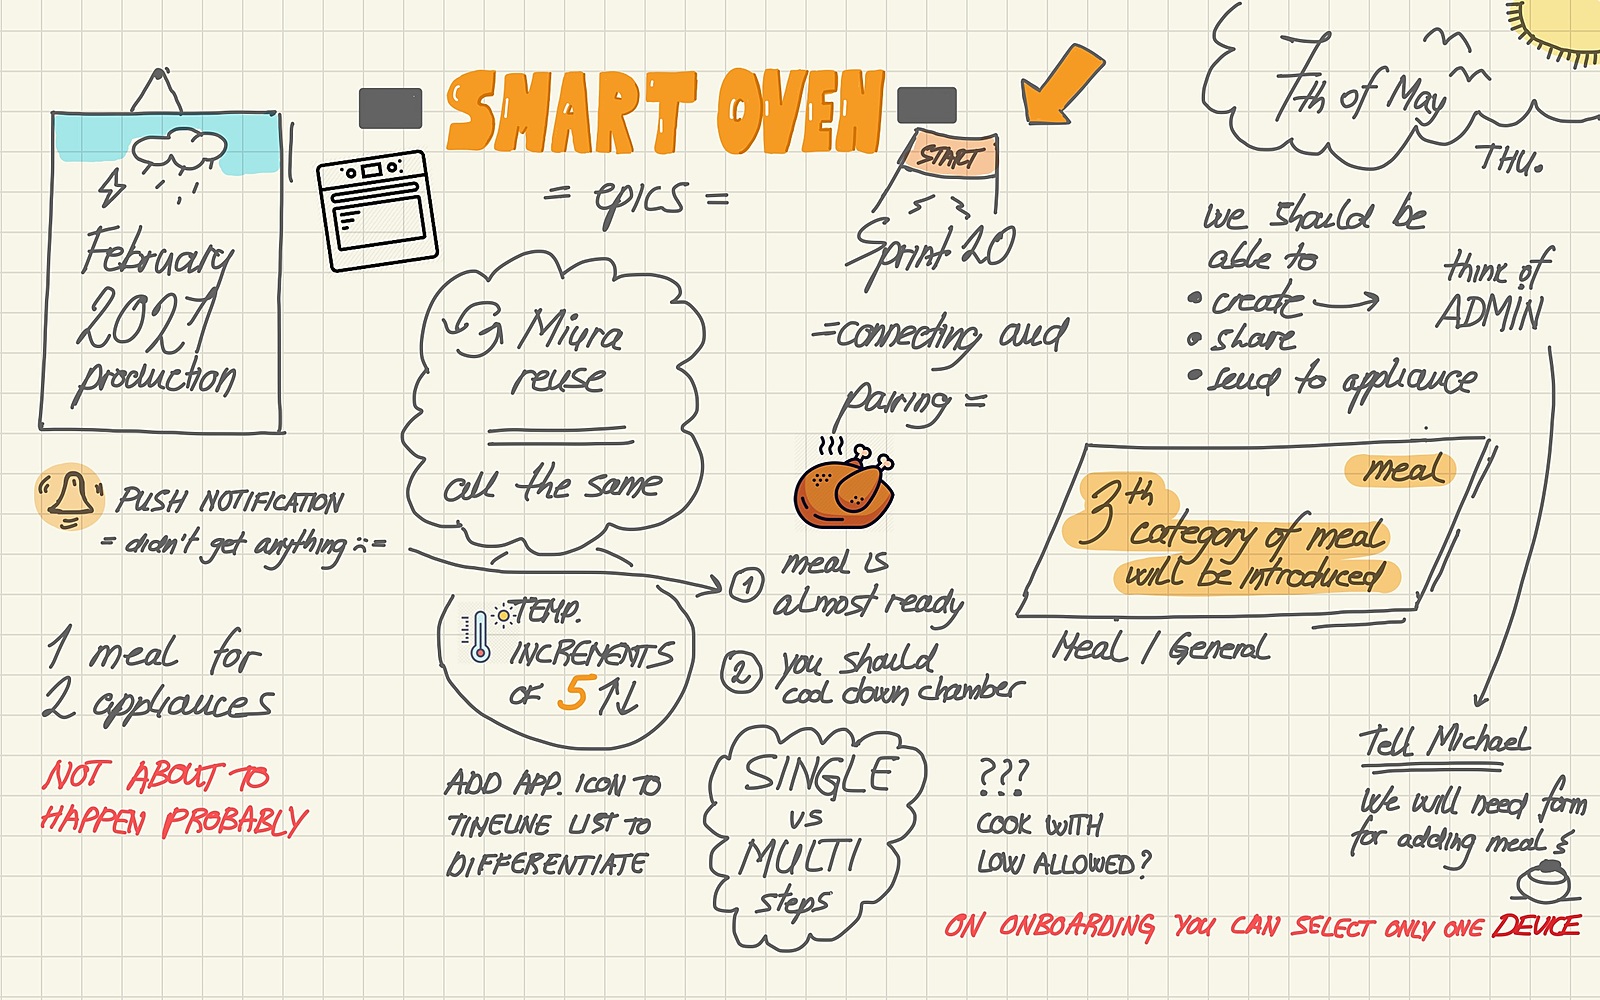 SMART OVEN
= epics =
February
2021
production
PUSH NOTIFICATION
= didn't get anything :( =
1 meal for
2 appliances
NOT ABOUT TO
HAPPEN PROBABLY
Miura
reuse
all the same
TEMP.
INCREMENTS
OF 5 ↑↓
ADD APP. ICON TO
TIMELINE LIST TO
DIFFERENTIATE
START
Sprint 20
=connecting and
pairing =
1 meal is
almost ready
2 you should
cool down chamber
SINGLE
vs
MULTI
steps
???
COOK WITH
LOW ALLOWED?
7th of May
THU.
we should be
able to
• create → think of
ADMIN
• share
• send to appliance
meal
3th
category of meal
will be introduced
Meal / General
Tell Michael
We will need form
for adding meal
ON ONBOARDING YOU CAN SELECT ONLY ONE DEVICE